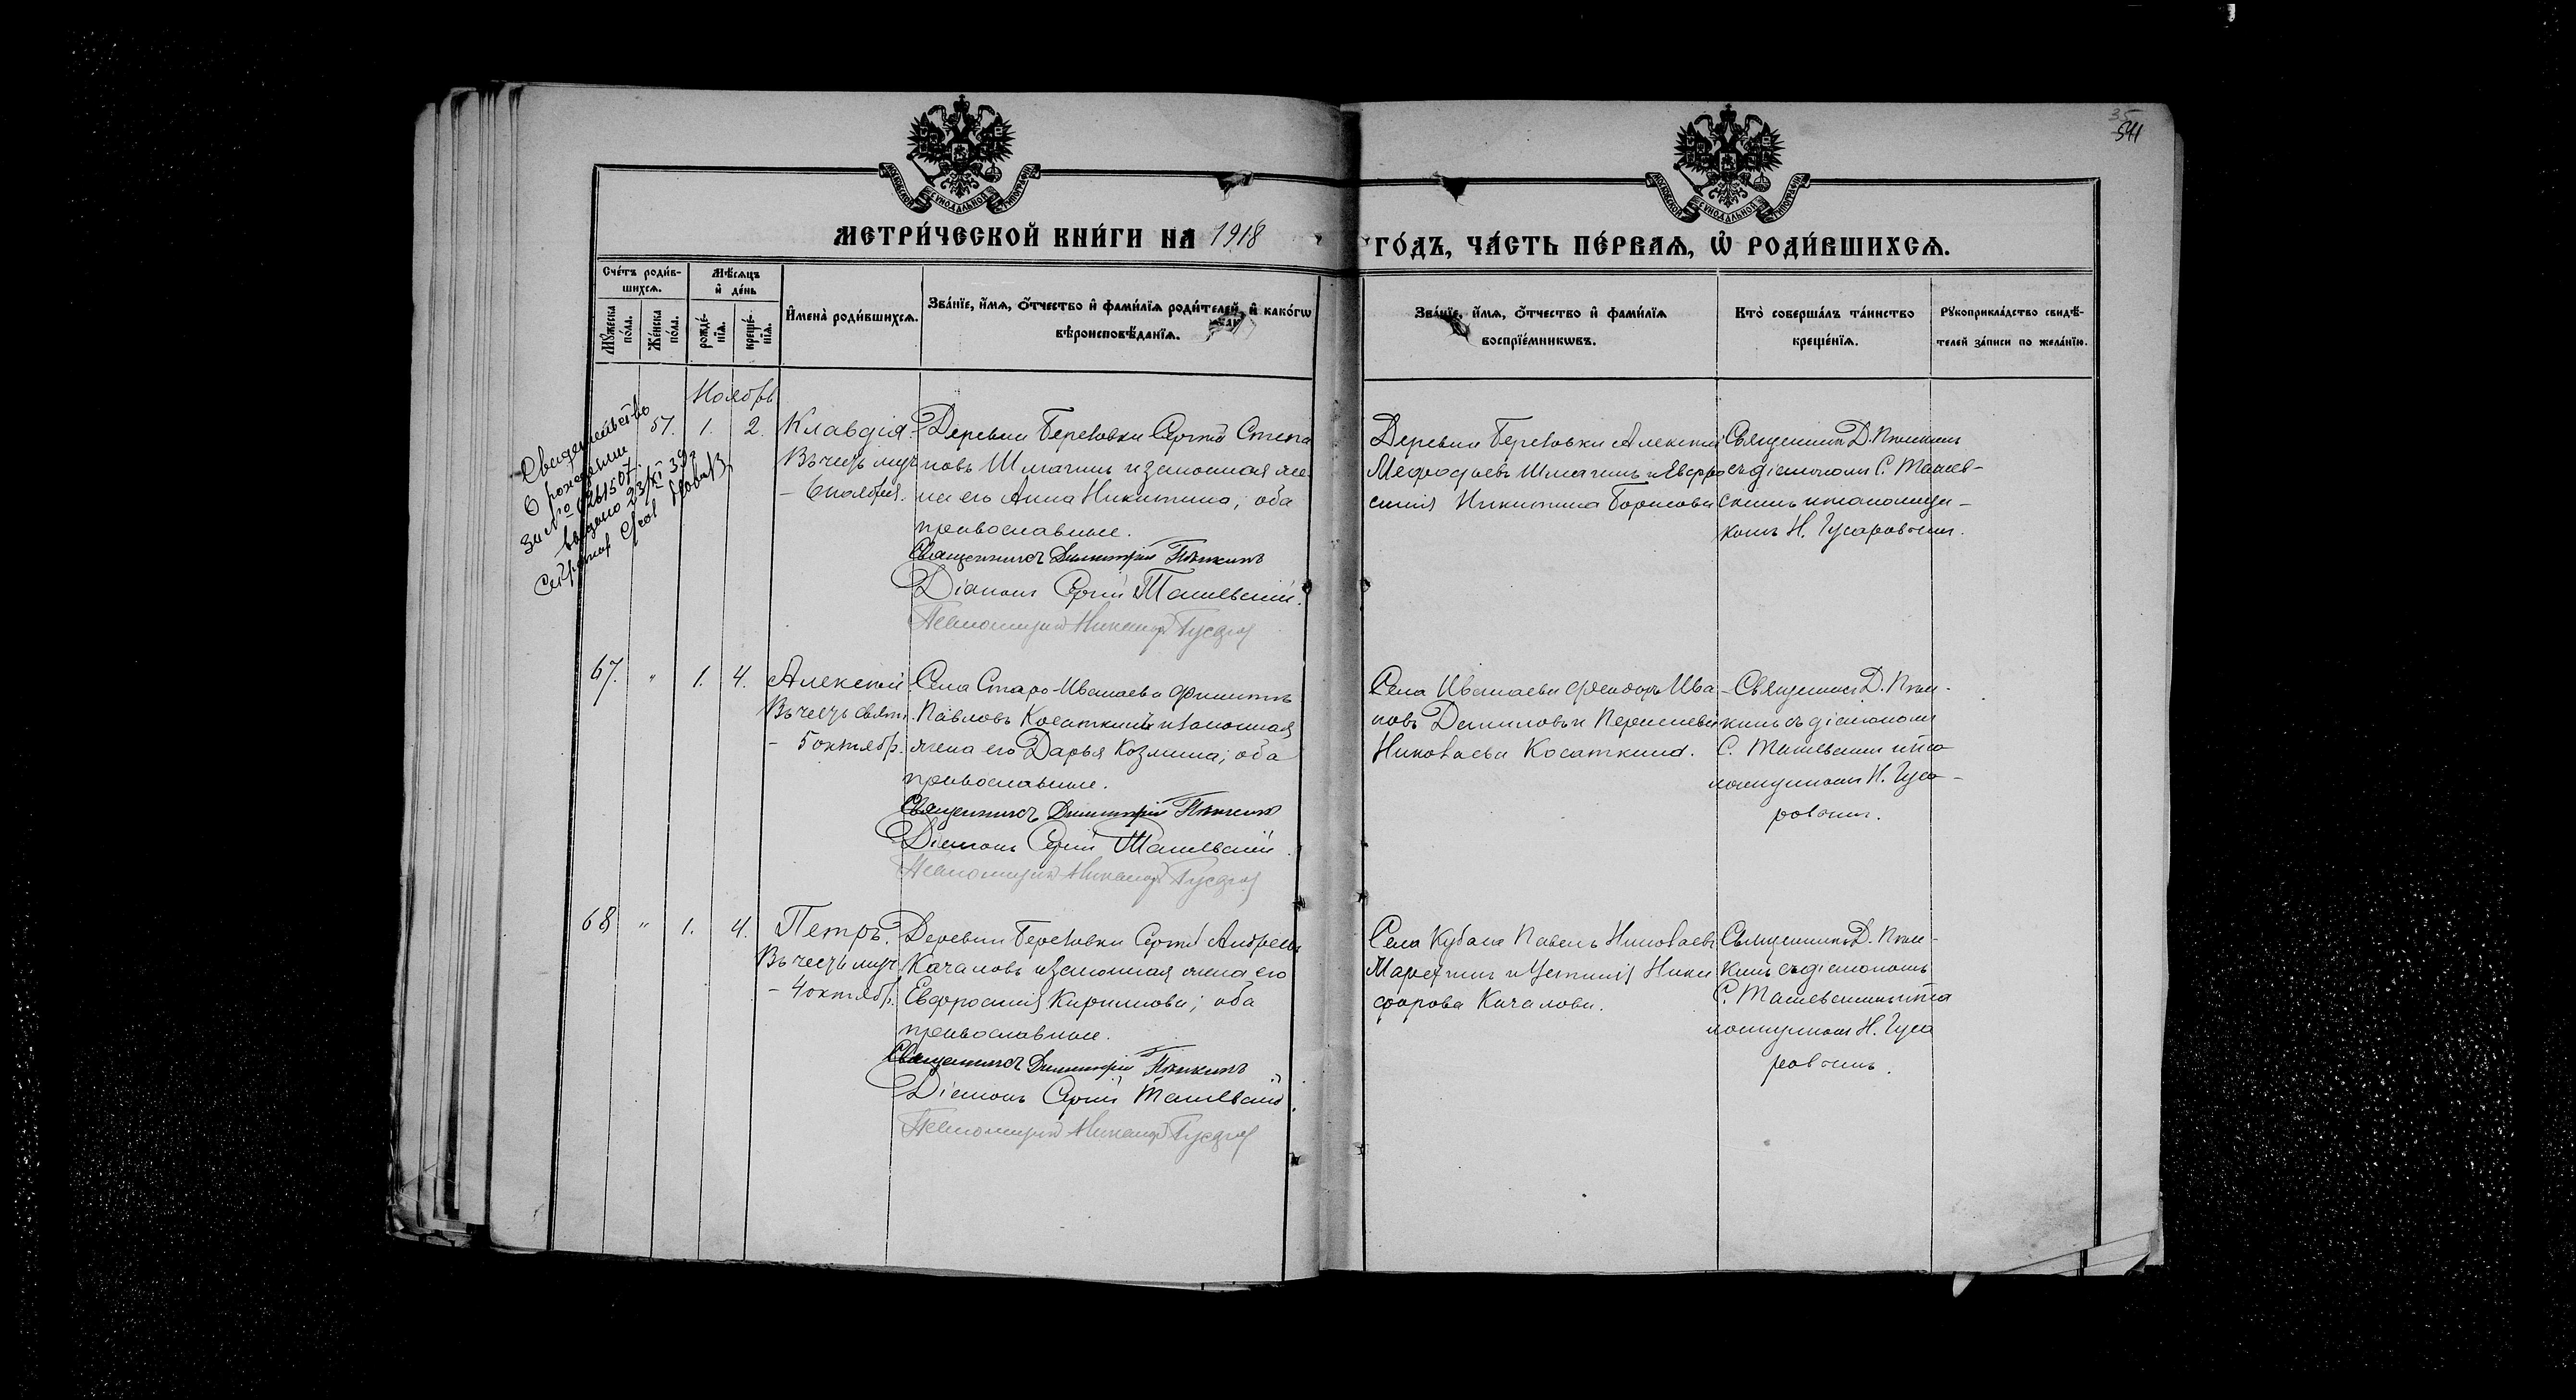 35
541
МОСКОВСКОЙ СѴНОДАЛЬНОЙ ТИПОГРАФІИ
МОСКОВСКОЙ СѴНОДАЛЬНОЙ ТИПОГРАФІИ
МЕТРИ́ЧЕСКОЙ КНИ́ГИ НА 1918
ГО́ДЪ, ЧА́СТЬ ПЕ́РВАЯ, Ѡ҆ РОДИ́ВШИХСЯ.
Сче́тъ роди́в-
шихся.
Мѣ́сяцъ
и҆ де́нь
Мꙋ́жеска по́ла.
Же́нска по́ла.
рожде́-нїя.
креще́-нїя.
И҆мена̀ роди́вшихся.
Зва́нїе, и҆́мя, ѻ҆́тчество и҆ фами́лїя роди́телей, и҆ како́гѡ
вѣроисповѣ́данїя.
Зва́нїе, и҆́мя, ѻ҆́тчество и҆ фами́лїя
воспрїе́мникѡвъ.
Кто̀ соверша́лъ та́инство
креще́нїя.
Рꙋкоприкла́дство свидѣ́-
телей за́писи по жела́нїю.
Ноябрь
Свидетельство
о рождении
за № 0261507
выдано 23/XI 39 г
51. 1. 2. Клавдія.
Въ честь муч
- 6 ноября.
Деревни Березовки Сергій Степа
новъ Шмагинъ и законная же
на его Анна Никитина; оба
православные.
Священникъ Димитрій Пѣнкинъ
Діаконъ Сергій Ташевскій.
Псаломщикъ Никаноръ Гусаров
Деревни Березовки Алексій
Мефодіевъ Шмагинъ и Евфро
синія Никитина Борисова
Священникъ Д. Пѣнкинъ
съ діакономъ С. Ташев-
скимъ и псаломщи-
комъ Н. Гусаровымъ.
67. " 1. 4. Алексій
Въ честь свят.
- 5 октябр.
Села Старо-Иванаева Филиппъ
Павловъ Косаткинъ и законная
жена его Дарья Козмина; оба
православные.
Священникъ Димитрій Пѣнкинъ
Діаконъ Сергій Ташевскій.
Псаломщикъ Никаноръ Гусаров
Села Иванаева Феодоръ Ива-
новъ Даниловъ и
Николаева Косаткина.
Священникъ Д. Пѣн-
кинъ съ діакономъ
С. Ташевскимъ и пса
ломщикомъ Н. Гуса-
ровымъ.
68 " 1. 4. Петръ.
Въ честь муч
- 4 октябр.
Деревни Березовки Сергій Андреевъ
Качаловъ и законная жена его
Евфросинія Кириллова; оба
православные.
Священникъ Димитрій Пѣнкинъ
Діаконъ Сергій Ташевскій.
Псаломщикъ Никаноръ Гусаров
Села Кубаса Павелъ Николаевъ
и Устинія Ники
форова Качалова.
Священникъ Д. Пѣн-
кинъ съ діакономъ
С. Ташевскимъ и пса
ломщикомъ Н. Гуса
ровымъ.